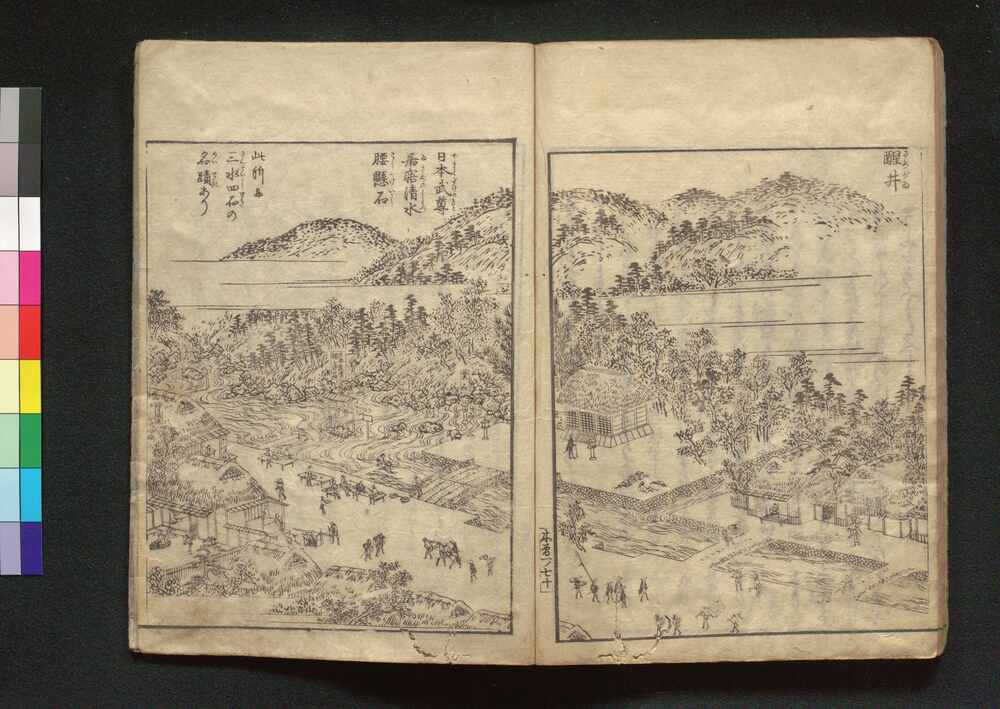 醒井
日本武尊
居寤清水
腰懸石
此
三水四石の
名蹟あり
木曽一ノ七十